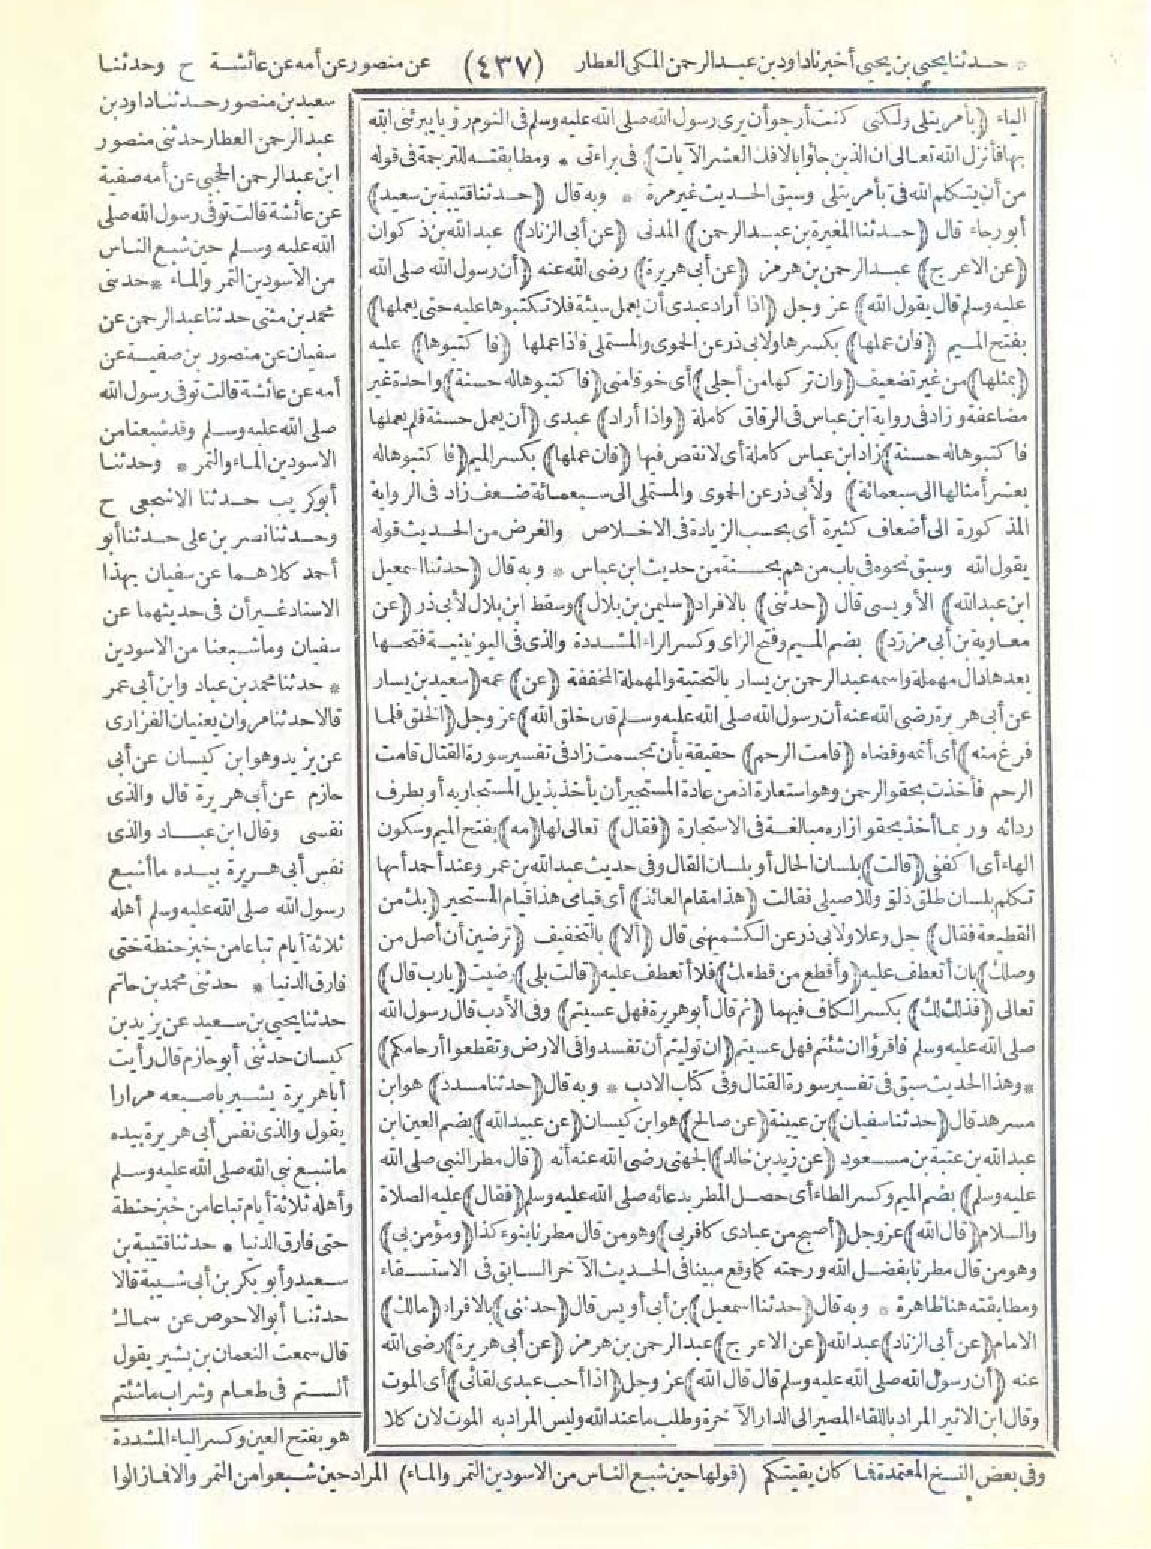 * حدثنا يحيى بن يحيى أخبرنا داود بن عبد الرحمن المكى العطار (٤٣٧) عن منصور عن أمه عن عائشة ح وحدثنا
الياء (بأمر يتلى ولكنى كنت أرجو أن يرى رسول الله صلى الله عليه وسلم فى النوم رؤيا يبرئنى الله
بها فأنزل الله تعالى ان الذين جاؤا بالافك العشر الآيات) فى براءتى * ومطابقته للترجمة فى قوله
من أن يتكلم الله فى بأمر يتلى وسبق الحديث غير مرة * وبه قال (حدثنا قتيبة بن سعيد)
أبو رجاء قال (حدثنا المغيرة بن عبد الرحمن) المدنى (عن أبى الزناد) عبد الله بن ذكوان
(عن الاعرج) عبد الرحمن بن هرمز (عن أبى هريرة) رضى الله عنه (أن رسول الله صلى الله
عليه وسلم قال يقول الله) عز وجل (اذا أراد عبدى أن يعمل سيئة فلا تكتبوها عليه حتى يعملها)
بفتح الميم (فان عملها) بكسرها ولابى ذر عن الحموى والمستملى فاذا عملها (فاكتبوها) عليه
(بمثلها) من غير تضعيف (وان تركها من أجلى) أى خوفا منى (فاكتبوها له حسنة) واحدة غير
مضاعفة وزاد فى رواية ابن عباس فى الرقاق كاملة (واذا أراد) عبدى (أن يعمل حسنة فلم يعملها
فاكتبوها له حسنة) زاد ابن عباس كاملة أى لا نقص فيها (فان عملها) بكسر الميم (فاكتبوها له
بعشر أمثالها الى سبعمائة) ولأبى ذر عن الحموى والمستملى الى سبعمائة ضعف زاد فى الرواية
المذكورة الى أضعاف كثيرة أى بحسب الزيادة فى الاخلاص والغرض من الحديث قوله
يقول الله وسبق نحوه فى باب من هم بحسنة من حديث ابن عباس * وبه قال (حدثنا اسمعيل
ابن عبد الله) الأويسى قال (حدثنى) بالافراد (سليمن بن بلال) وسقط ابن بلال لأبى ذر (عن
معاوية بن أبى مزرد) بضم الميم وفتح الزاى وكسر الراء المشددة والذى فى اليونينية فتحها
بعدها دال مهملة واسمه عبد الرحمن بن يسار بالتحتية والمهملة المخففة (عن) عمه (سعيد بن يسار
عن أبى هريرة رضى الله عنه أن رسول الله صلى الله عليه وسلم قال خلق الله) عز وجل (الخلق فلما
فرغ منه) أى أتمه وقضاه (قامت الرحم) حقيقة بأن تجسمت زاد فى تفسير سورة القتال قامت
الرحم فأخذت بحقو الرحمن وهو استعارة اذ من عادة المستجير أن يأخذ بذيل المستجار به أو بطرف
ردائه وربما أخذ بحقو ازاره مبالغة فى الاستجارة (فقال) تعالى لها (مه) بفتح الميم وسكون
الهاء أى اكففى (قالت) بلسان الحال أو بلسان القال وفى حديث عبد الله بن عمر وعند أحمد أنها
تكلم بلسان طلق ذلق وللاصيلى فقالت (هذا مقام العائذ) أى قيامى هذا قيام المستجير (بك من
القطيعة فقال) جل وعلا ولابى ذر عن الكشميهنى قال (ألا) بالتخفيف (ترضين أن أصل من
وصلك) بان أتعطف عليه (وأقطع من قطعك) فلا أتعطف عليه (قالت بلى) رضيت (يا رب قال)
تعالى (فذلك لك) بكسر الكاف فيهما (ثم قال أبو هريرة فهل عسيتم) وفى الأدب قال رسول الله
صلى الله عليه وسلم فاقرؤا ان شئتم فهل عسيتم (ان توليتم أن تفسدوا فى الارض وتقطعوا أرحامكم)
* وهذا الحديث سبق فى تفسير سورة القتال وفى كتاب الادب * وبه قال (حدثنا مسدد) هو ابن
مسرهد قال (حدثنا سفيان) بن عيينة (عن صالح) هو ابن كيسان (عن عبيد الله) بضم العين ابن
عبد الله بن عتبة بن مسعود (عن زيد بن خالد) الجهنى رضى الله عنه أنه (قال مطر النبى صلى الله
عليه وسلم) بضم الميم وكسر الطاء أى حصل المطر بدعائه صلى الله عليه وسلم (فقال) عليه الصلاة
والسلام (قال الله) عز وجل (أصبح من عبادى كافر بى) وهو من قال مطرنا بنوء كذا (ومؤمن بى)
وهو من قال مطرنا بفضل الله ورحمته كما وقع مبينا فى الحديث الآخر السابق فى الاستسقاء
ومطابقته هنا ظاهرة * وبه قال (حدثنا اسمعيل) بن أبى أويس قال (حدثنى) بالافراد (مالك)
الامام (عن أبى الزناد) عبد الله (عن الاعرج) عبد الرحمن بن هرمز (عن أبى هريرة) رضى الله
عنه (أن رسول الله صلى الله عليه وسلم قال قال الله) عز وجل (اذا أحب عبدى لقائى) أى الموت
وقال ابن الاثير المراد باللقاء المصير الى الدار الآخرة وطلب ما عند الله وليس المراد به الموت لان كلا
سعيد بن منصور حدثنا داود بن
عبد الرحمن العطار حدثنى منصور
ابن عبد الرحمن الحجبى عن أمه صفية
عن عائشة قالت توفى رسول الله صلى
الله عليه وسلم حين شبع الناس
من الاسودين التمر والماء * حدثنى
محمد بن مثنى حدثنا عبد الرحمن عن
سفيان عن منصور بن صفية عن
أمه عن عائشة قالت توفى رسول الله
صلى الله عليه وسلم وقد شبعنا من
الاسودين الماء والتمر * وحدثنا
أبو كريب حدثنا الاشجعى ح
وحدثنا نصر بن على حدثنا أبو
أحمد كلاهما عن سفيان بهذا
الاسناد غير أن فى حديثهما عن
سفيان وما شبعنا من الاسودين
* حدثنا محمد بن عباد وابن أبى عمر
قالا حدثنا مروان يعنيان الفزارى
عن يزيد وهو ابن كيسان عن أبى
حازم عن أبى هريرة قال والذى
نفسى وقال ابن عباد والذى
نفس أبى هريرة بيده ما أشبع
رسول الله صلى الله عليه وسلم أهله
ثلاثة أيام تباعا من خبز حنطة حتى
فارق الدنيا * حدثنى محمد بن حاتم
حدثنا يحيى بن سعيد عن يزيد بن
كيسان حدثنى أبو حازم قال رأيت
أبا هريرة يشير باصبعه مرارا
يقول والذى نفس أبى هريرة بيده
ما شبع نبى الله صلى الله عليه وسلم
وأهله ثلاثة أيام تباعا من خبز حنطة
حتى فارق الدنيا * حدثنا قتيبة بن
سعيد وأبو بكر بن أبى شيبة قالا
حدثنا أبو الاحوص عن سماك
قال سمعت النعمان بن بشير يقول
ألستم فى طعام وشراب ما شئتم
هو بفتح العين وكسر الياء المشددة
وفى بعض النسخ المعتمدة فما كان يقيتكم (قولها حين شبع الناس من الاسودين التمر والماء) المراد حين شبعوا من التمر والا فما زالوا